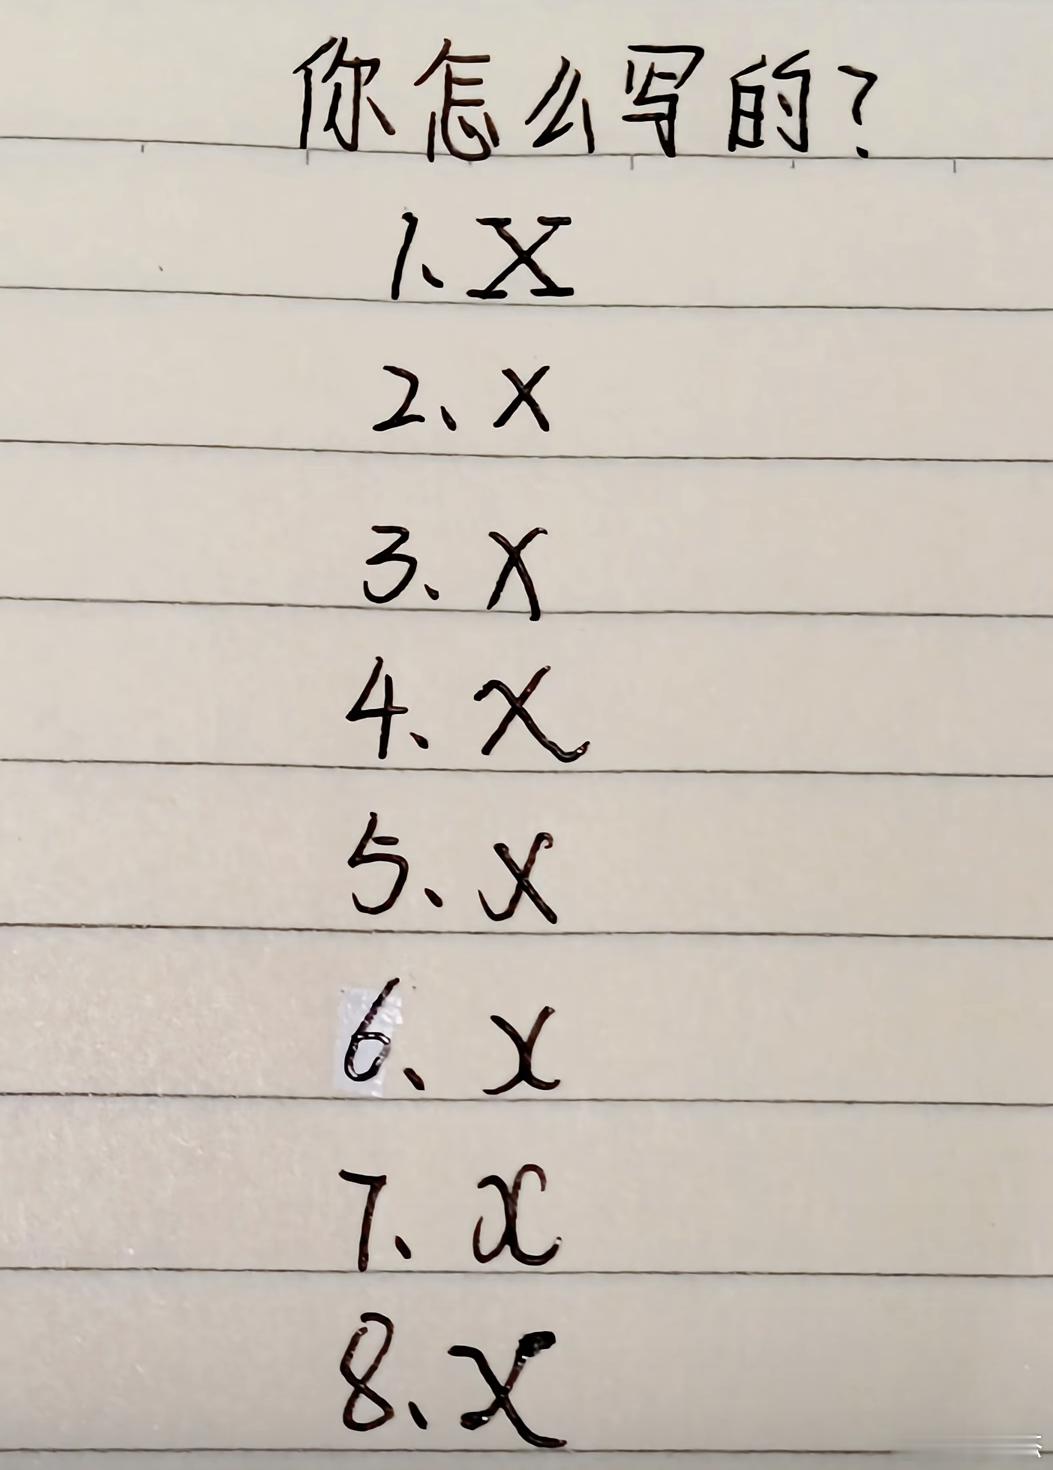 你怎么写的?
1、X
2、x
3、x
4、x
5、x
6、x
7、x
8、x